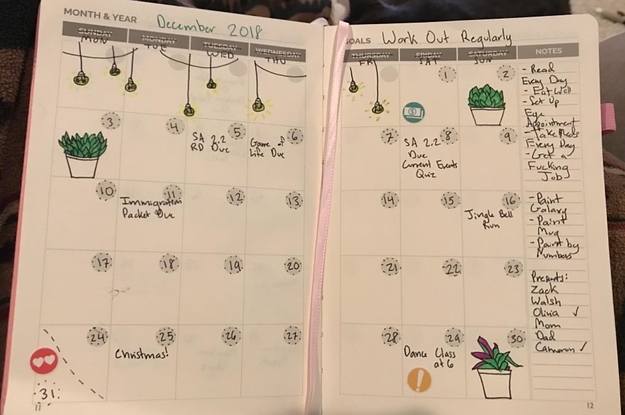 MONTH & YEAR December 2018
GOALS Work Out Regularly
SUNDAY MONDAY TUESDAY WEDNESDAY THURSDAY FRIDAY SATURDAY NOTES
MON TUE WED THU FRI SAT SUN
1 2
3 4 5 6 7 8 9
SA 2.2
RD Due
Game of
Life Due
SA 2.2
Due
Current Events
Quiz
10 11 12 13 14 15 16
Immigration
Packet Due
Jingle Bell
Run
17 18 19 20 21 22 23
24 25 26 27 28 29 30
Christmas!
Dance Class
at 6
31
- Read
Every Day
- Eat Well
- Set Up
Eye
Appointment
- Take Meds
Every Day
- Get a
Fucking
Job
- Paint
Galaxy
- Paint
Mug
- Paint by
Numbers
Presents:
Zack
Walsh
Olivia ✓
Mom
Dad
Cameron ✓
12